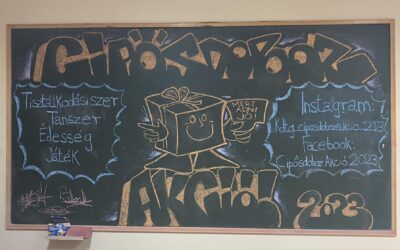 CIPŐSDOBOZ
Tisztálkodási szer
Tanszer
Édesség
Játék
MERT
ADNI
JÓ!
Instagram:
Facebook:
Cipősdoboz Akció 2023
AKCIÓ
2023